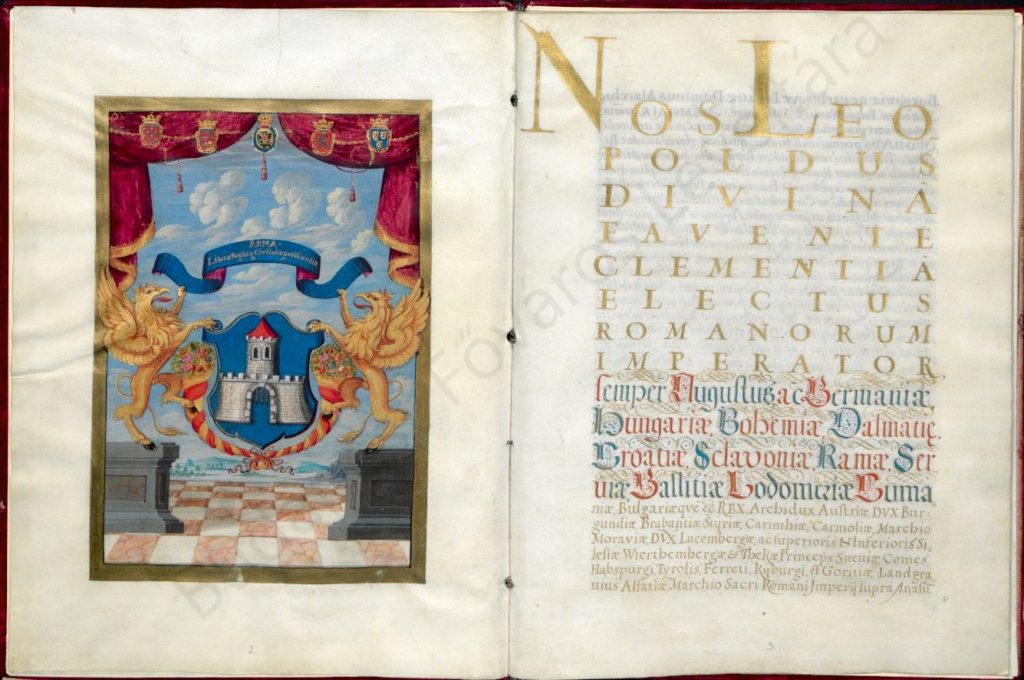 ARMA
Liberæ Regiæq Civitatis pestiensis
NOS LEO
POLDUS
DIVINA
FAVENTE
CLEMENTIA
ELECTUS
ROMANORUM
IMPERATOR
semper Augustus, ac Germaniæ,
Hungariæ, Bohemiæ, Dalmatię,
Croatiæ, Sclavoniæ, Ramæ, Ser
uiæ, Gallitiæ, Lodomeriæ, Cuma
niæ, Bulgariæqve &c REX, Archidux Austriæ, DVX Bur-
gundiæ, Brabantiæ, Styriæ, Carinthiæ, Carniolæ, Marchio
Moraviæ, DVX Lucembergæ, ac superioris & Inferioris Si-
lesiæ, Wierthembergæ & Thekæ, Princeps Sueviæ, Comes
Habspurgi, Tyrolis, Ferreti, Kyburgi, et Goritiæ, Landgra
uius Alsatiæ, Marchio Sacri Romani Imperij supra Anasū
2
3
Főváros Levéltára